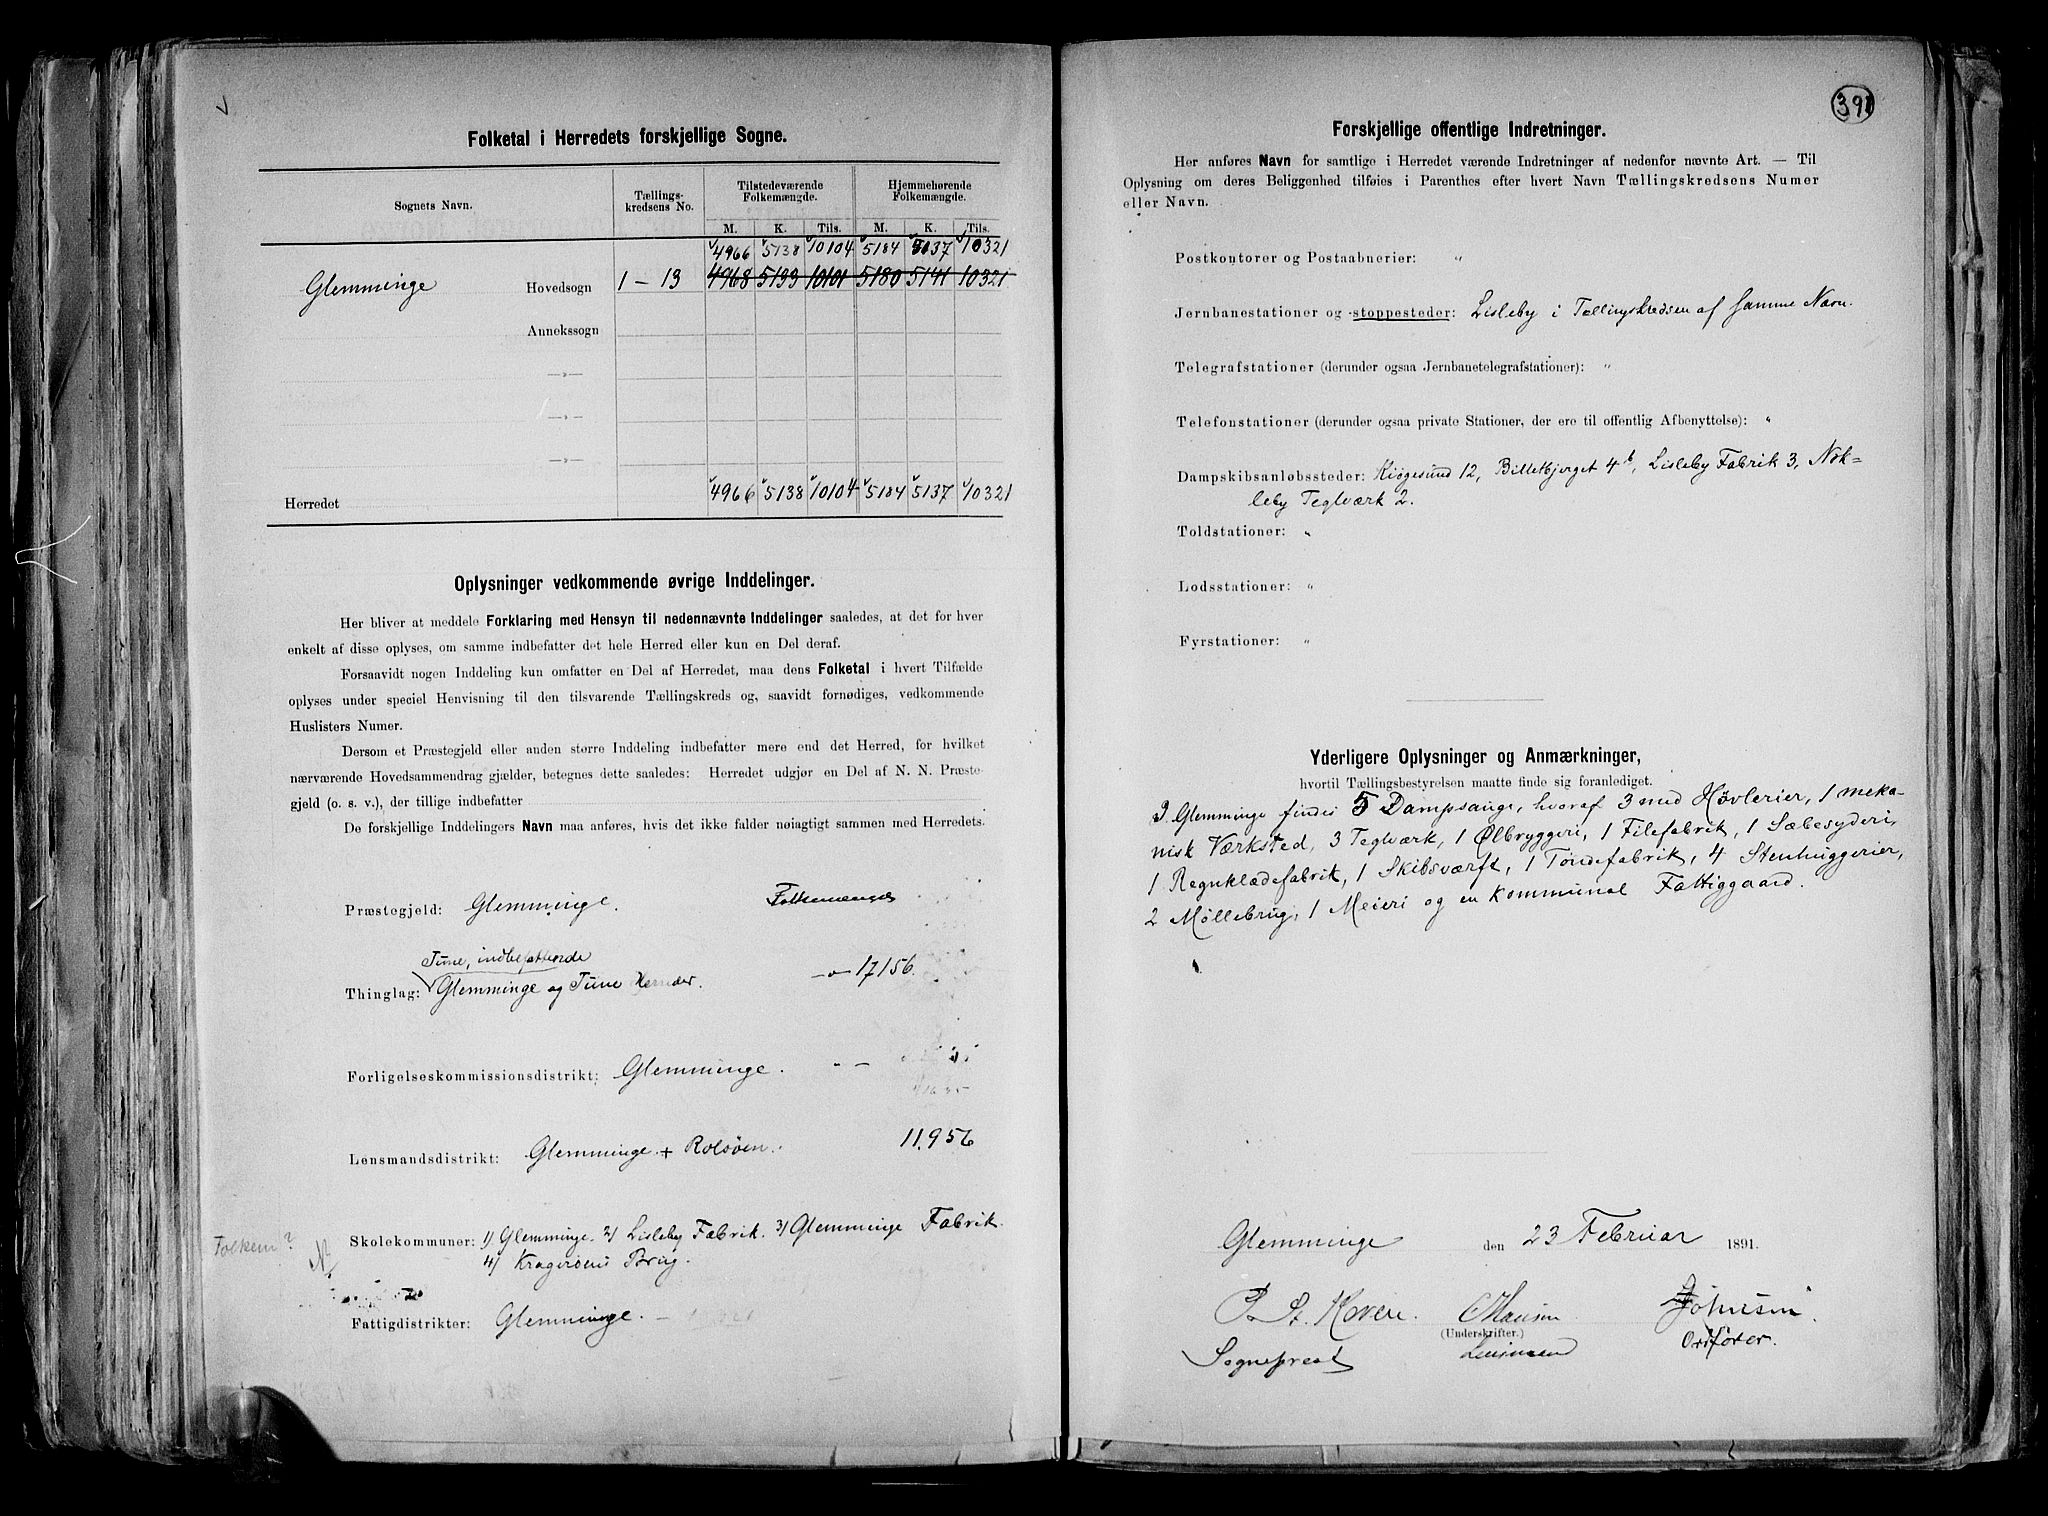 Folketal i Herredets forskjellige Sogne.
Sognets Navn.
Tællings-
kredsens No.
Tilstedeværende
Folkemængde.
Hjemmehørende
Folkemængde.
M. K. Tils. M. K. Tils.
4966 5138 10104 5184 5137 10321
Glemminge Hovedsogn 1 – 13 4968 5133 10101 5180 5141 10321
Annekssogn
—„—
—„—
—„—
Herredet 4966 5138 10104 5184 5137 10321
Oplysninger vedkommende øvrige Inddelinger.
Her bliver at meddele Forklaring med Hensyn til nedennævnte Inddelinger saaledes, at det for hver
enkelt af disse oplyses, om samme indbefatter det hele Herred eller kun en Del deraf.
Forsaavidt nogen Inddeling kun omfatter en Del af Herredet, maa dens Folketal i hvert Tilfælde
oplyses under speciel Henvisning til den tilsvarende Tællingskreds og, saavidt fornødiges, vedkommende
Huslisters Numer.
Dersom et Præstegjeld eller anden større Inddeling indbefatter mere end det Herred, for hvilket
nærværende Hovedsammendrag gjælder, betegnes dette saaledes: Herredet udgjør en Del af N. N. Præste-
gjeld (o. s. v.), der tillige indbefatter
De forskjellige Inddelingers Navn maa anføres, hvis det ikke falder nøiagtigt sammen med Herredets.
Præstegjeld: Glemminge. Folkemængde
Tune, indbefattende
Thinglag: Glemminge og Tune Herreder. —„— 17156.
Forligelseskommissionsdistrikt: Glemminge.
Lensmandsdistrikt: Glemminge + Rolsøen. 11.956
Folkem?
Skolekommuner: 1) Glemminge. 2) Lisleby Fabrik. 3) Glemminge Fabrik.
4) Kragerøens Brug.
Fattigdistrikter: Glemminge.
391
Forskjellige offentlige Indretninger.
Her anføres Navn for samtlige i Herredet værende Indretninger af nedenfor nævnte Art. — Til
Oplysning om deres Beliggenhed tilføies i Parenthes efter hvert Navn Tællingskredsens Numer
eller Navn.
Postkontorer og Postaabnerier: „
Jernbanestationer og -stoppesteder: Lisleby i Tællingskredsen af samme Navn.
Telegrafstationer (derunder ogsaa Jernbanetelegrafstationer): „
Telefonstationer (derunder ogsaa private Stationer, der ere til offentlig Afbenyttelse): „
Dampskibsanløbssteder: Kjøgesund 12, Billetbjerget 4b, Lisleby Fabrik 3, Nok-
leby Teglværk 2.
Toldstationer: „
Lodsstationer: „
Fyrstationer: „
Yderligere Oplysninger og Anmærkninger,
hvortil Tællingsbestyrelsen maatte finde sig foranlediget.
I Glemminge findes 5 Dampsauge, hvoraf 3 med Høvlerier, 1 meka-
nisk Værksted, 3 Teglværk, 1 Ølbryggeri, 1 Filefabrik, 1 Sæbesyderi,
1 Regnklædefabrik, 1 Skibsværft, 1 Tøndefabrik, 4 Stenhuggerier,
2 Møllebrug, 1 Meieri og en kommunal Fattiggaard.
Glemminge den 23 Februar 1891.
P. St. Koren. Hansen Johnsen
(Underskrifter.)
Sogneprest Lensmand Ordfører.